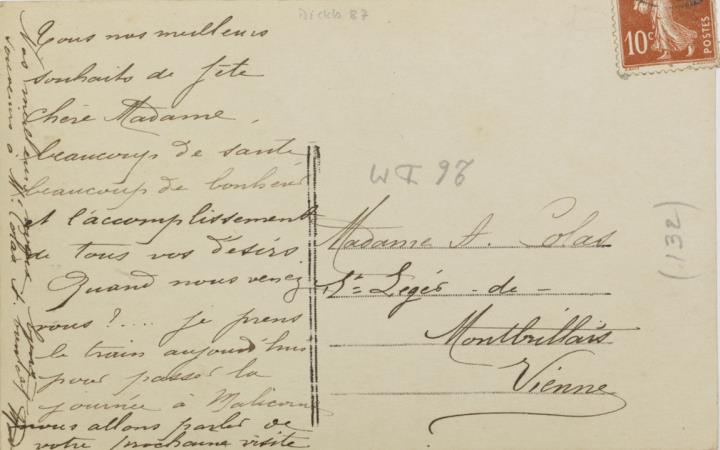 Dickb 87
Tous nos meilleurs
souhaits de fête
chère Madame,
beaucoup de santé
beaucoup de bonheur
et l'accomplissement
de tous vos désirs
Quand nous venez
vous ?.... je prens
le train aujourd'hui
pour passer la
journée à Malicorne
nous allons parler de
votre prochaine visite
Nos meilleurs
souvenirs à M. Colas
10c
POSTES
WI 96
(132)
Madame A. Colas
St Legér - de -
Montbrillais
Vienne